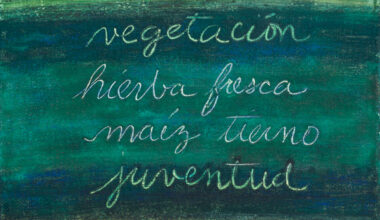 vegetación
hierba fresca
maíz tierno
juventud